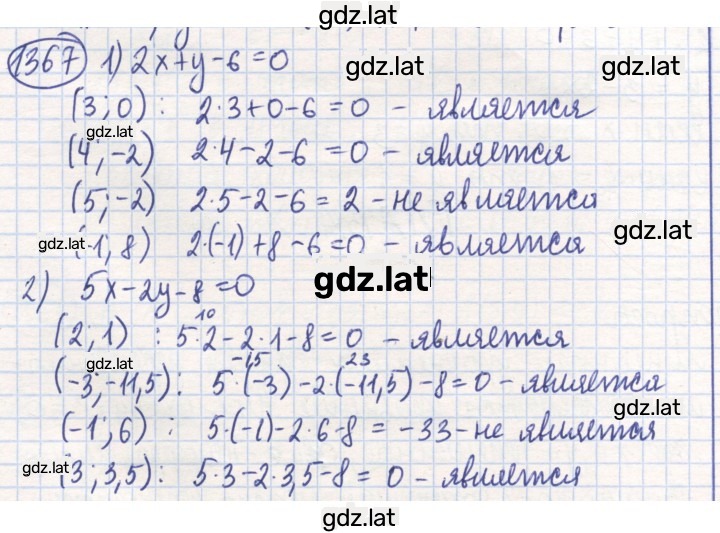 gdz.lat
1367 1) 2x+y-6=0
gdz.lat gdz.lat
(3; 0): 2·3+0-6=0 - является
gdz.lat
(4; -2) 2·4-2-6=0 - является
gdz.lat gdz.lat
(5; -2) 2·5-2-6=2 - не является
gdz.lat
gdz.lat -1; 8) 2·(-1)+8-6=0 - является
2) 5x-2y-8=0
gdz.lat
10
(2; 1) : 5·2-2·1-8=0 - является
-15 23
gdz.lat
(-3; -11,5): 5·(-3)-2·(-11,5)-8=0 - является
gdz.lat
(-1; 6) : 5·(-1)-2·6-8=-33 - не является
gdz.lat 3; 3,5): 5·3-2·3,5-8=0 - является
gdz.lat